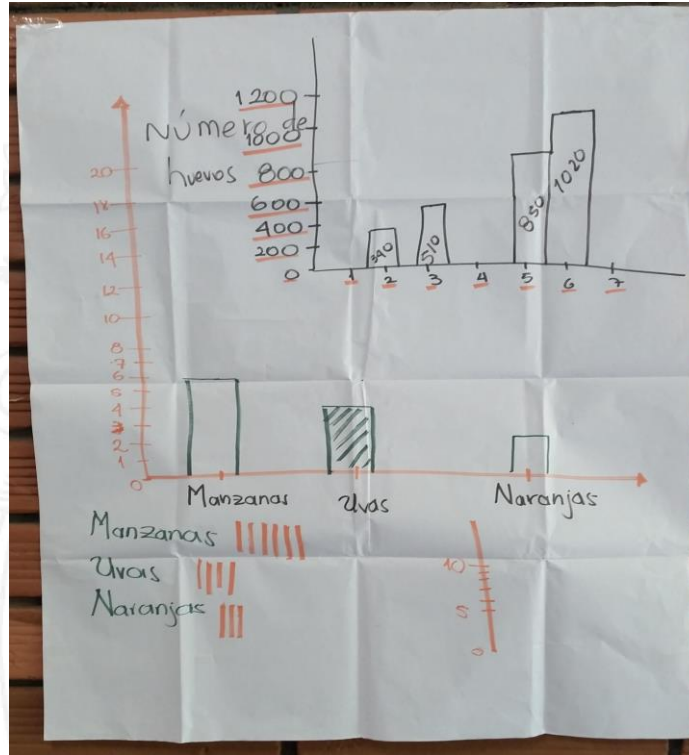 1200
Número de
1000
huevos 800
600
400
200
0
340
510
850
1020
1 2 3 4 5 6 7
20
18
16
14
12
10
8
7
6
5
4
3
2
1
0
Manzanas Uvas Naranjas
Manzanas
Uvas
Naranjas
10
5
0